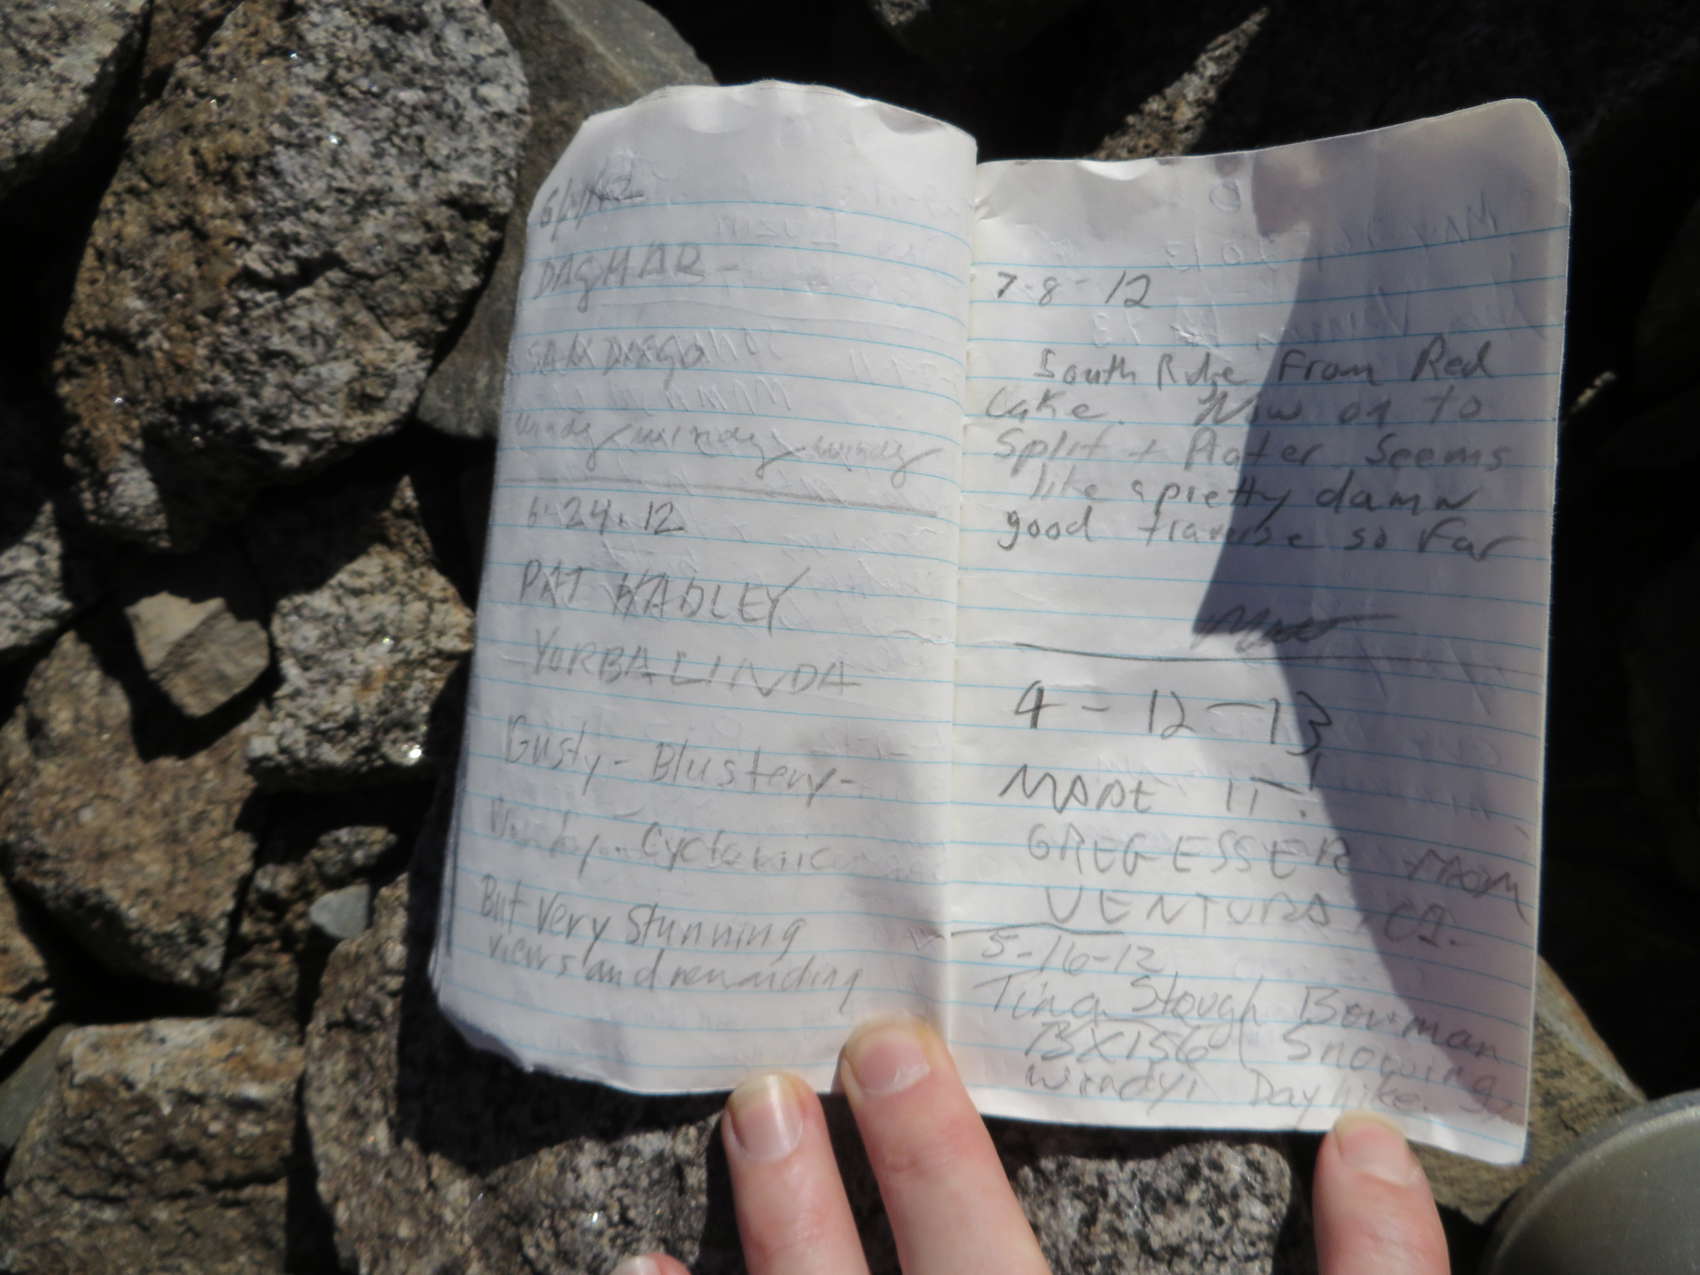 DAGMAR -
SAN DIEGO
windy - windy - windy
6-24-12
PAT HADLEY
YORBA LINDA
Gusty - Blustery -
Cyclonic
But very stunning
views and rewarding
7-8-12
South Ridge From Red
Lake. Now on to
Split + Prater Seems
like a pretty damn
good traverse so far
Matt
4-12-13
MADE IT!
GREG ESSER FROM
VENTURA, CA.
5-16-12
Tina Stough Bowman
BX156 Snowing
windy! Day hike.